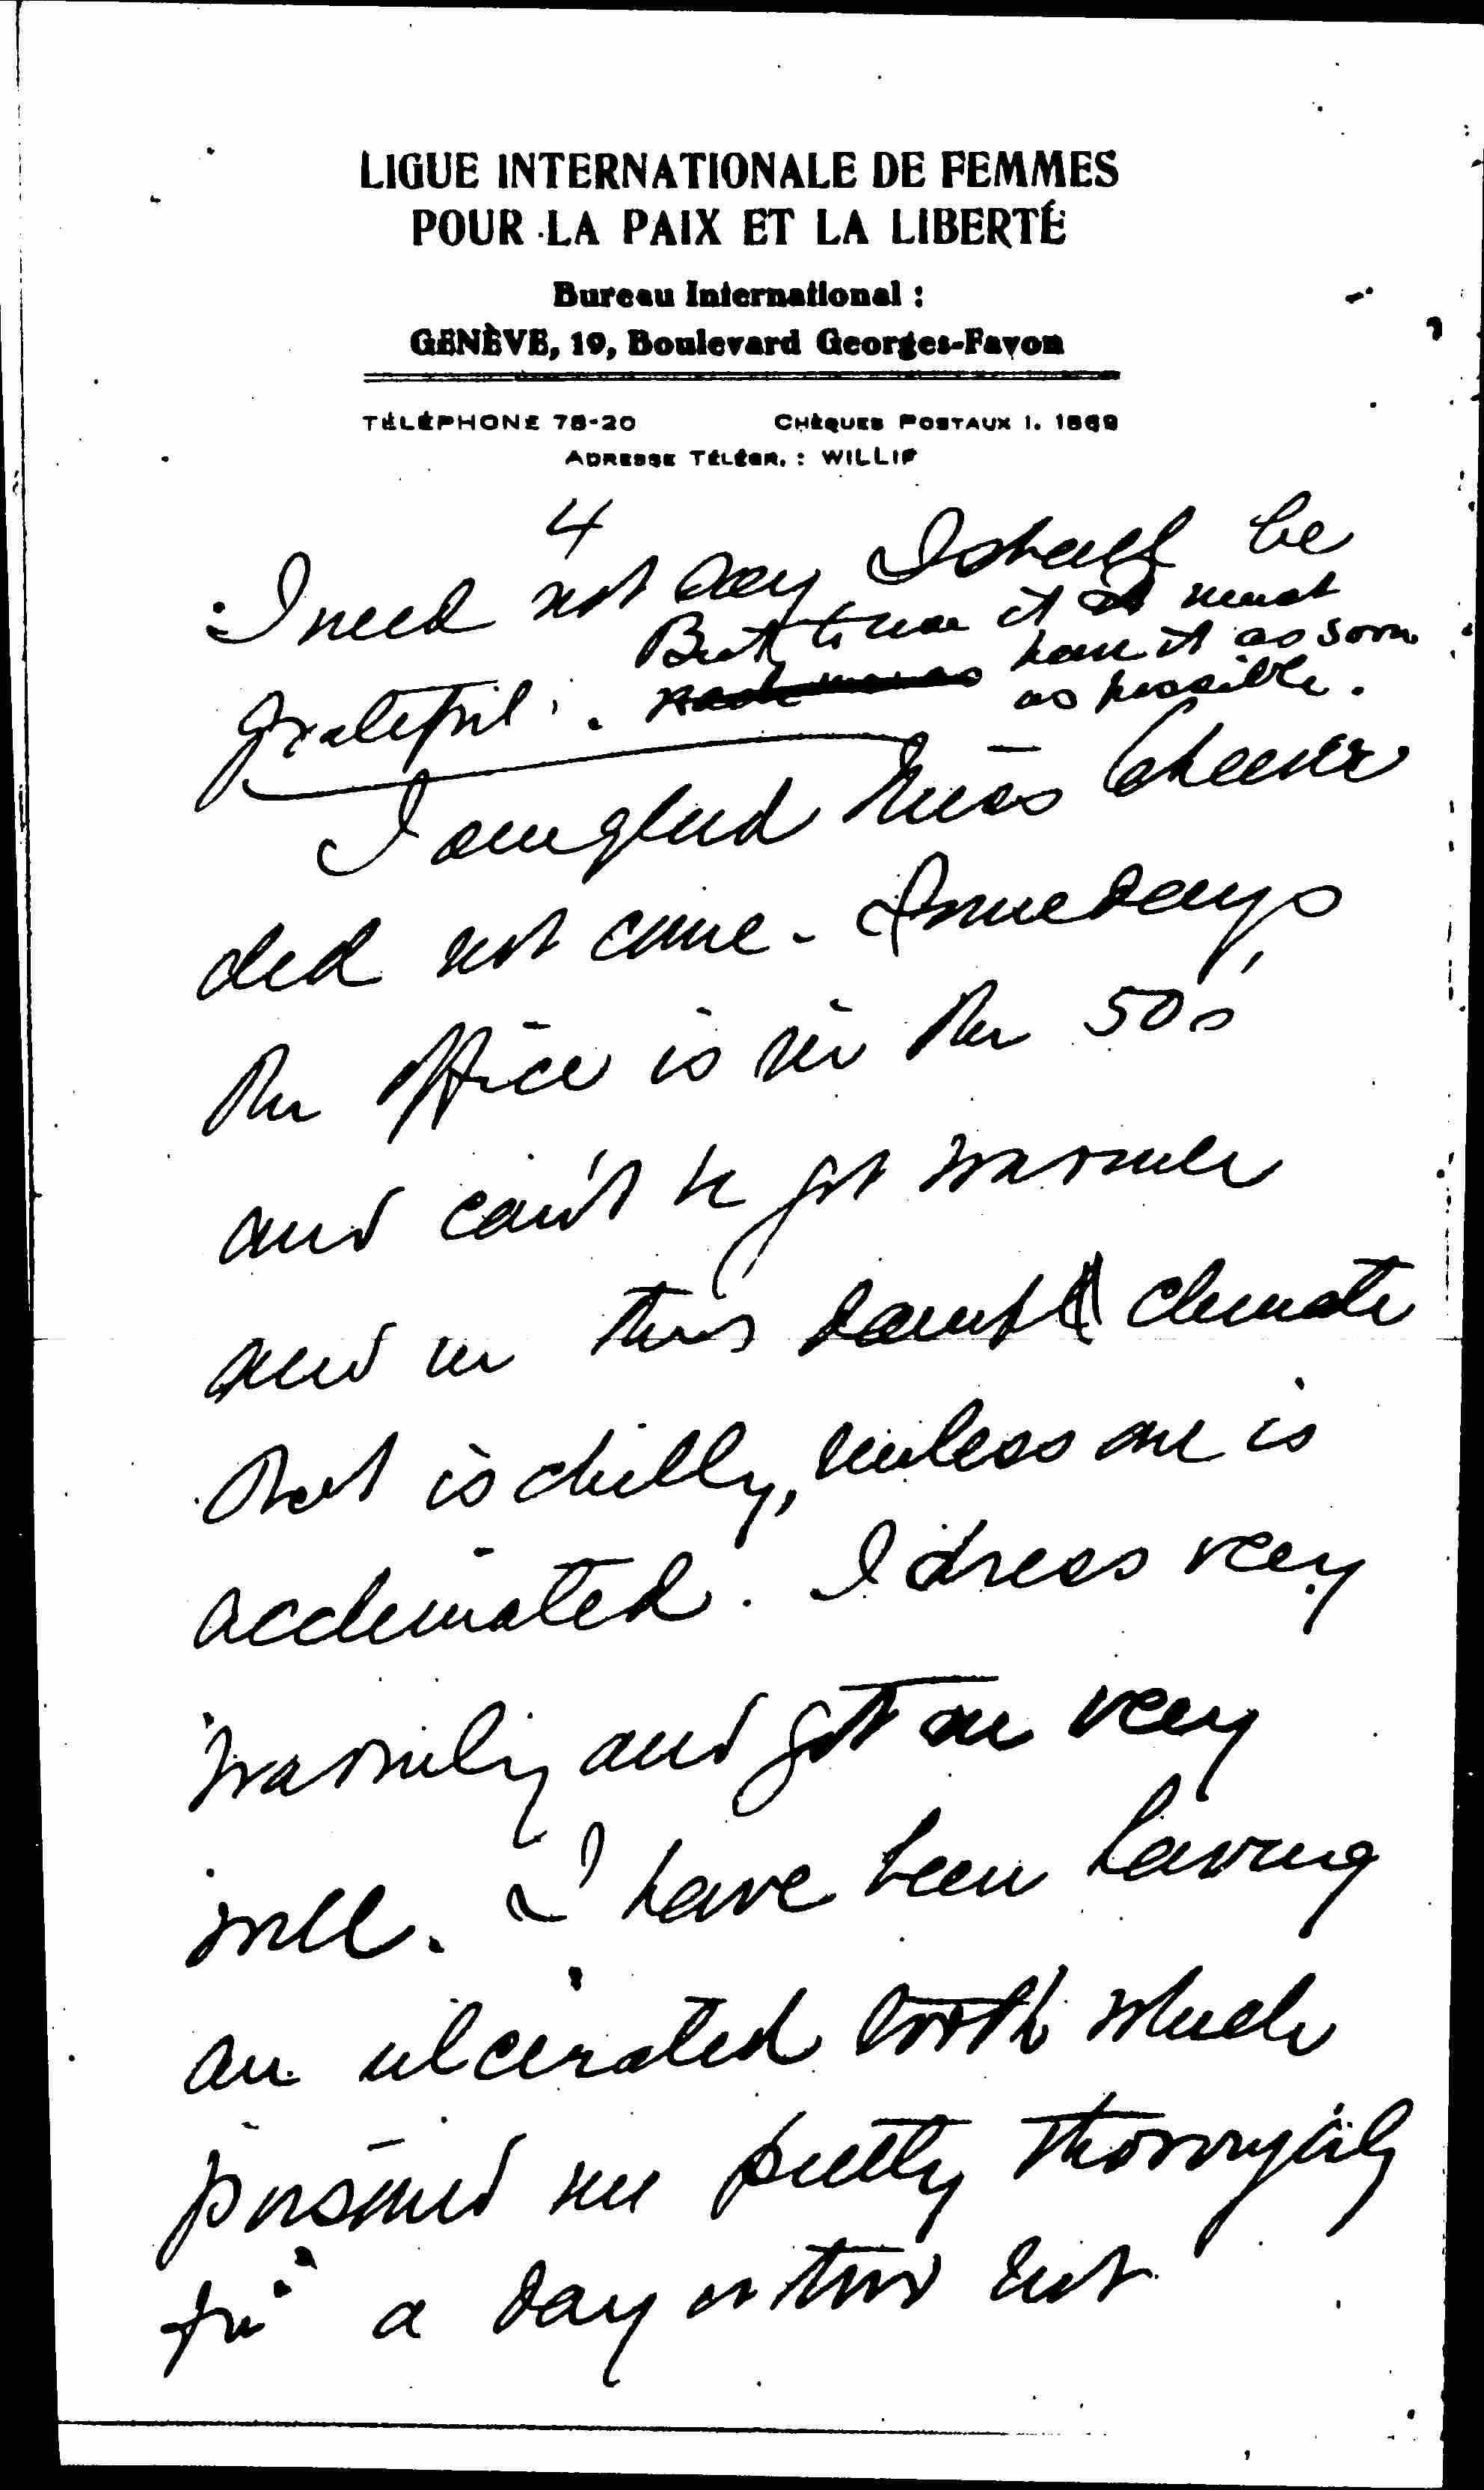 LIGUE INTERNATIONALE DE FEMMES
POUR LA PAIX ET LA LIBERTÉ
Bureau International :
GENÈVE, 19, Boulevard Georges-Favon
TÉLÉPHONE 78-20 CHÈQUES POSTAUX I. 1869
ADRESSE TÉLÉGR. : WILLIF
4
I need not say I shall be
But to use it I must
grateful. have it as soon
as possible.
I am glad Miss Cheever
did not come - Some days
the office is in the 50s
and can't be got warmer
and in this damp climate
that is chilly, unless one is
acclimated. I dress very
warmly and get on very
well. I have been having
an ulcerated tooth which
poisoned me pretty thoroughly
for a day or two but